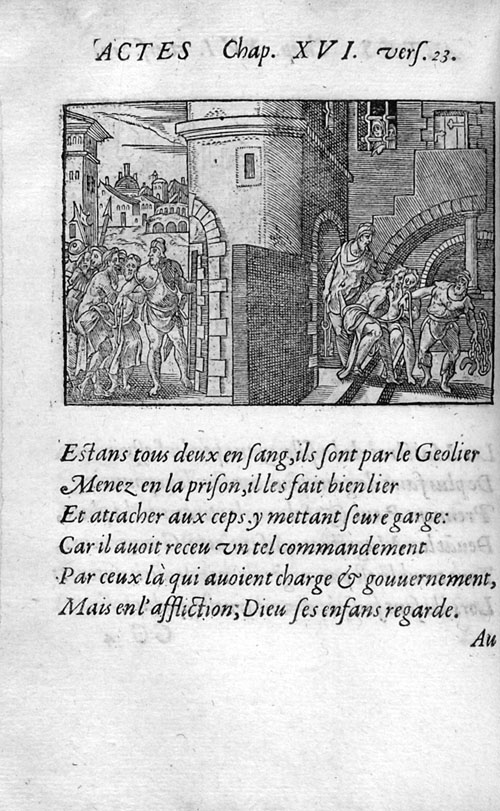 ACTES Chap. XVI. verſ. 23.
Eſtans tous deux en ſang, ils ſont par le Geolier
Menez en la priſon, il les fait bien lier
Et attacher aux ceps. y mettant ſeure garge:
Car il auoit receu vn tel commandement
Par ceux là qui auoient charge & gouuernement,
Mais en l'affliction, Dieu ſes enfans regarde.
Au